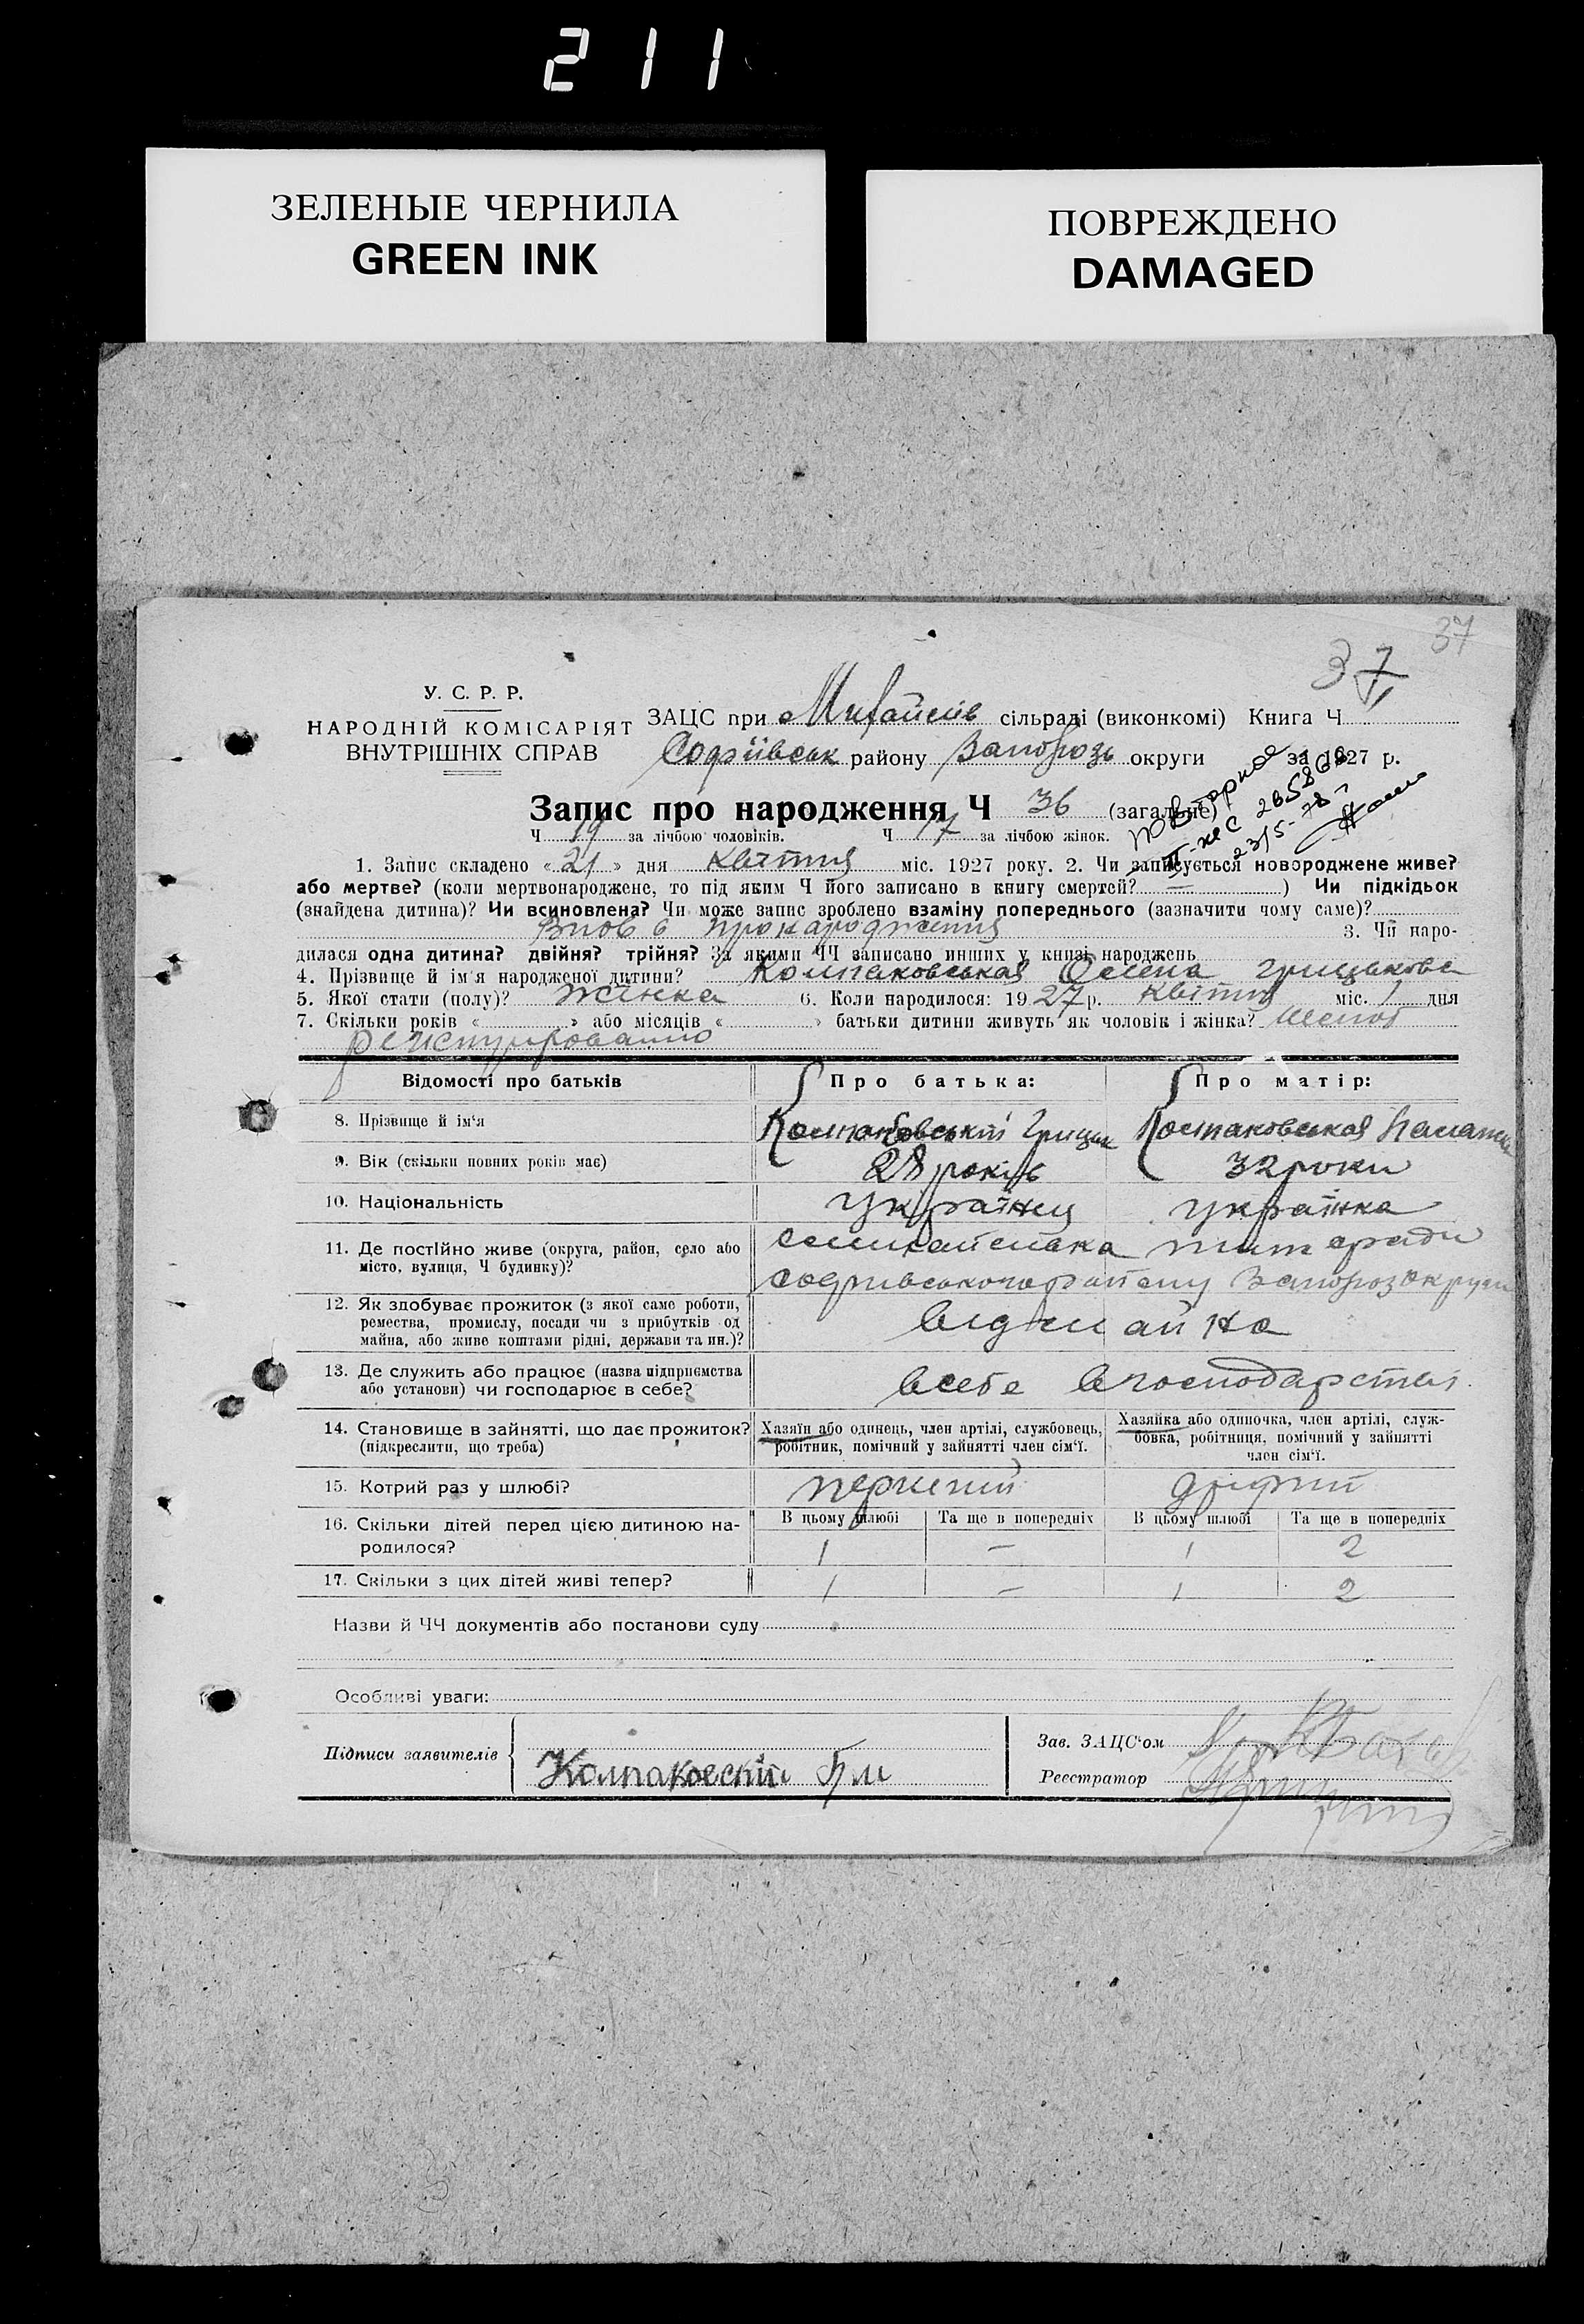 211
ЗЕЛЕНЫЕ ЧЕРНИЛА
GREEN INK
ПОВРЕЖДЕНО
DAMAGED
37
37
У. С. Р. Р.
НАРОДНІЙ КОМІСАРІЯТ
ВНУТРІШНІХ СПРАВ
ЗАЦС при Михайлів сільраді (виконкомі) Книга Ч
Софіївськ району Запорозь округи за 1927 р.
Запис про народження Ч 36 (загальне)
Ч 19 за лічбою чоловіків. Ч 17 за лічбою жінок.
повторное
23/5-78
1. Запис складено «21» дня квітня міс. 1927 року. 2. Чи записується новороджене живе?
або мертве? (коли мертвонароджене, то під яким Ч його записано в книгу смертей? — ) Чи підкідьок
(знайдена дитина)? Чи всиновлена? Чи може запис зроблено взаміну попереднього (зазначити чому саме)?
3. Чи наро-
дилася одна дитина? двійня? трійня? За якими ЧЧ записано инших у книзі народжень
4. Прізвище й ім'я народженої дитини? Колпаковськая Олена Грицькова
5. Якої стати (полу)? жінка 6. Коли народилося: 1927 р. квітня міс. 1 дня
7. Скільки років « » або місяців « » батьки дитини живуть як чоловік і жінка? шлюб
регистрировано
Відомості про батьків Про батька: Про матір:
8. Прізвище й ім'я Колпаковський Грицько Колпаковськая Палажка
9. Вік (скільки повних років має) 28 років 32 роки
10. Національність Українец українка
11. Де постійно живе (округа, район, село або
місто, вулиця, Ч будинку)?
с Михайлівка сільради
Софиівського району Запороз округи
12. Як здобуває прожиток (з якої саме роботи,
ремества, промислу, посади чи з прибутків од
майна, або живе коштами рідні, держави та ин.)?
від майна
13. Де служить або працює (назва підприємства
або установи) чи господарює в себе?
всебе в господарстві
14. Становище в зайнятті, що дає прожиток?
(підкреслити, що треба)
Хазяїн або одинець, член артілі, службовець,
робітник, помічний у зайнятті член сім'ї.
Хазяйка або одиночка, член артілі, служ-
бовка, робітниця, помічний у зайнятті
член сім'ї.
15. Котрий раз у шлюбі? перший другий
16. Скільки дітей перед цією дитиною на-
родилося?
В цьому шлюбі Та ще в попередніх В цьому шлюбі Та ще в попередніх
1 — 1 2
17. Скільки з цих дітей живі тепер? 1 — 1 2
Назви й ЧЧ документів або постанови суду
Особливі уваги:
Підписи заявителів
Колпаковскій
Зав. ЗАЦС'ом
Реєстратор